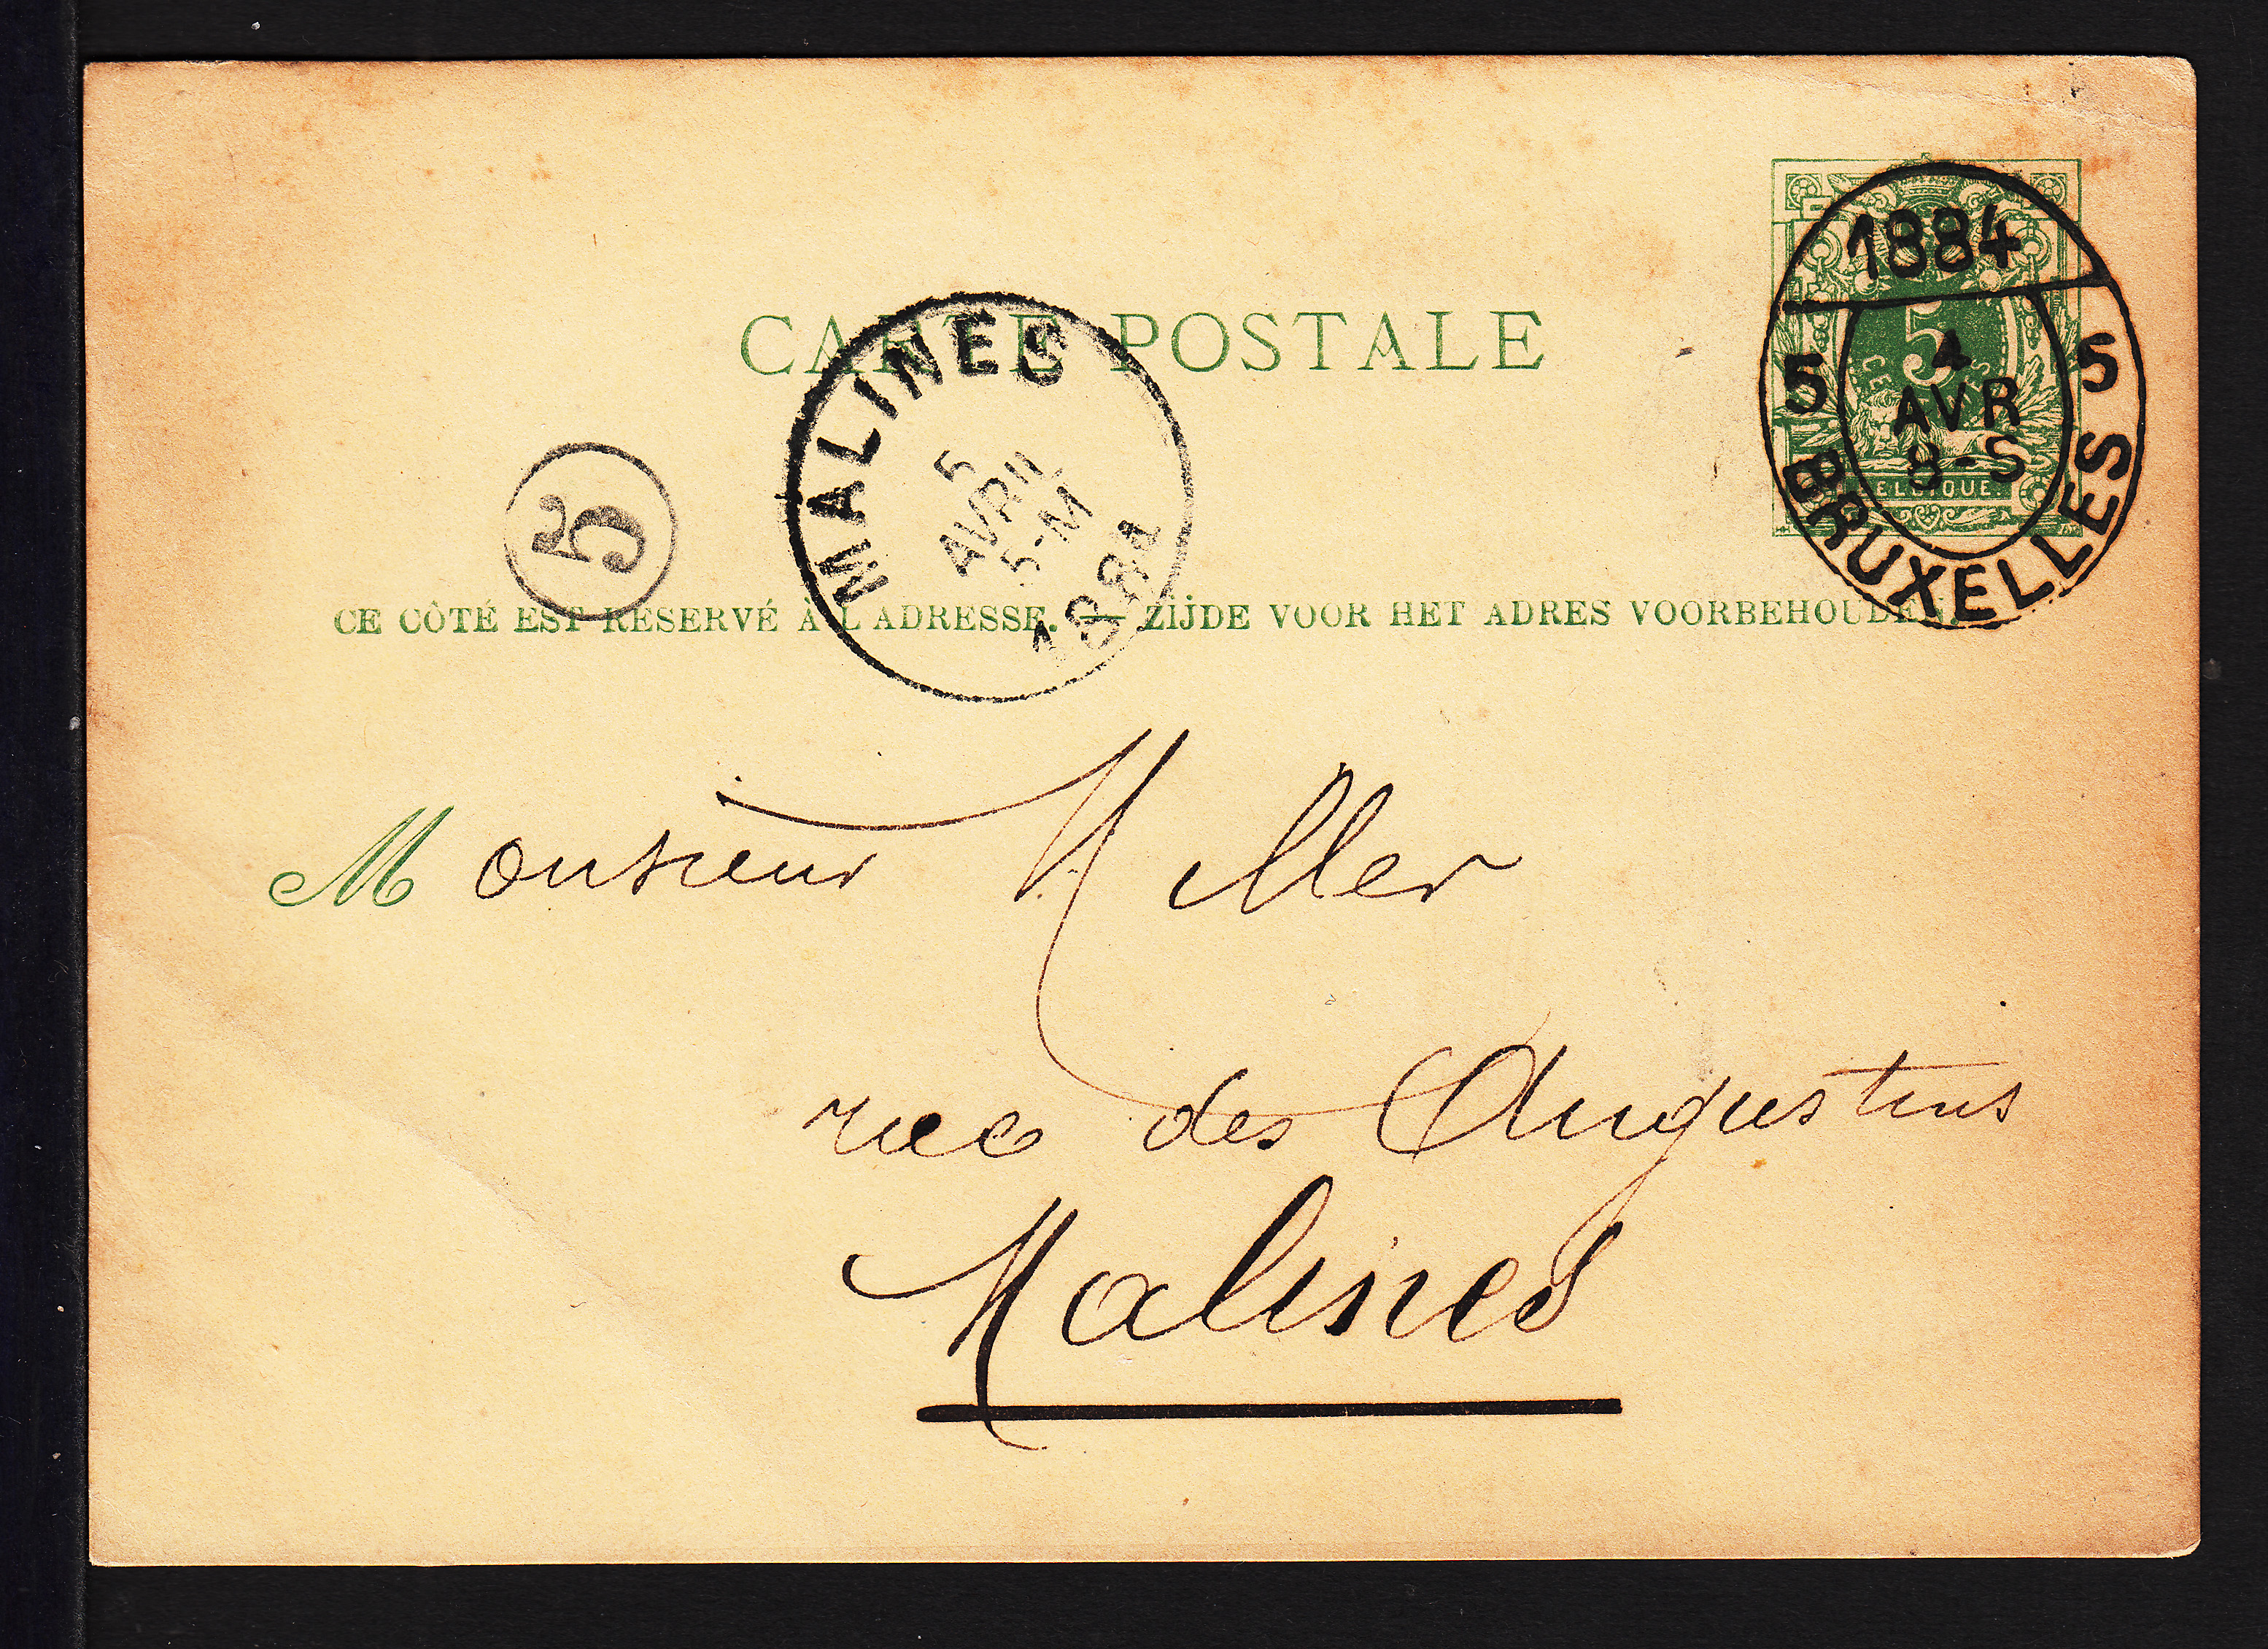 1884
5 5
5
CENTIMES
4
AVR
8-S
BELGIQUE.
BRUXELLES
CARTE POSTALE
MALINES
5
AVRIL
5-M
1884
5
CE CÔTÉ EST RÉSERVÉ À L'ADRESSE. — ZIJDE VOOR HET ADRES VOORBEHOUDEN.
Monsieur Miller
rue des Augustins
Malines